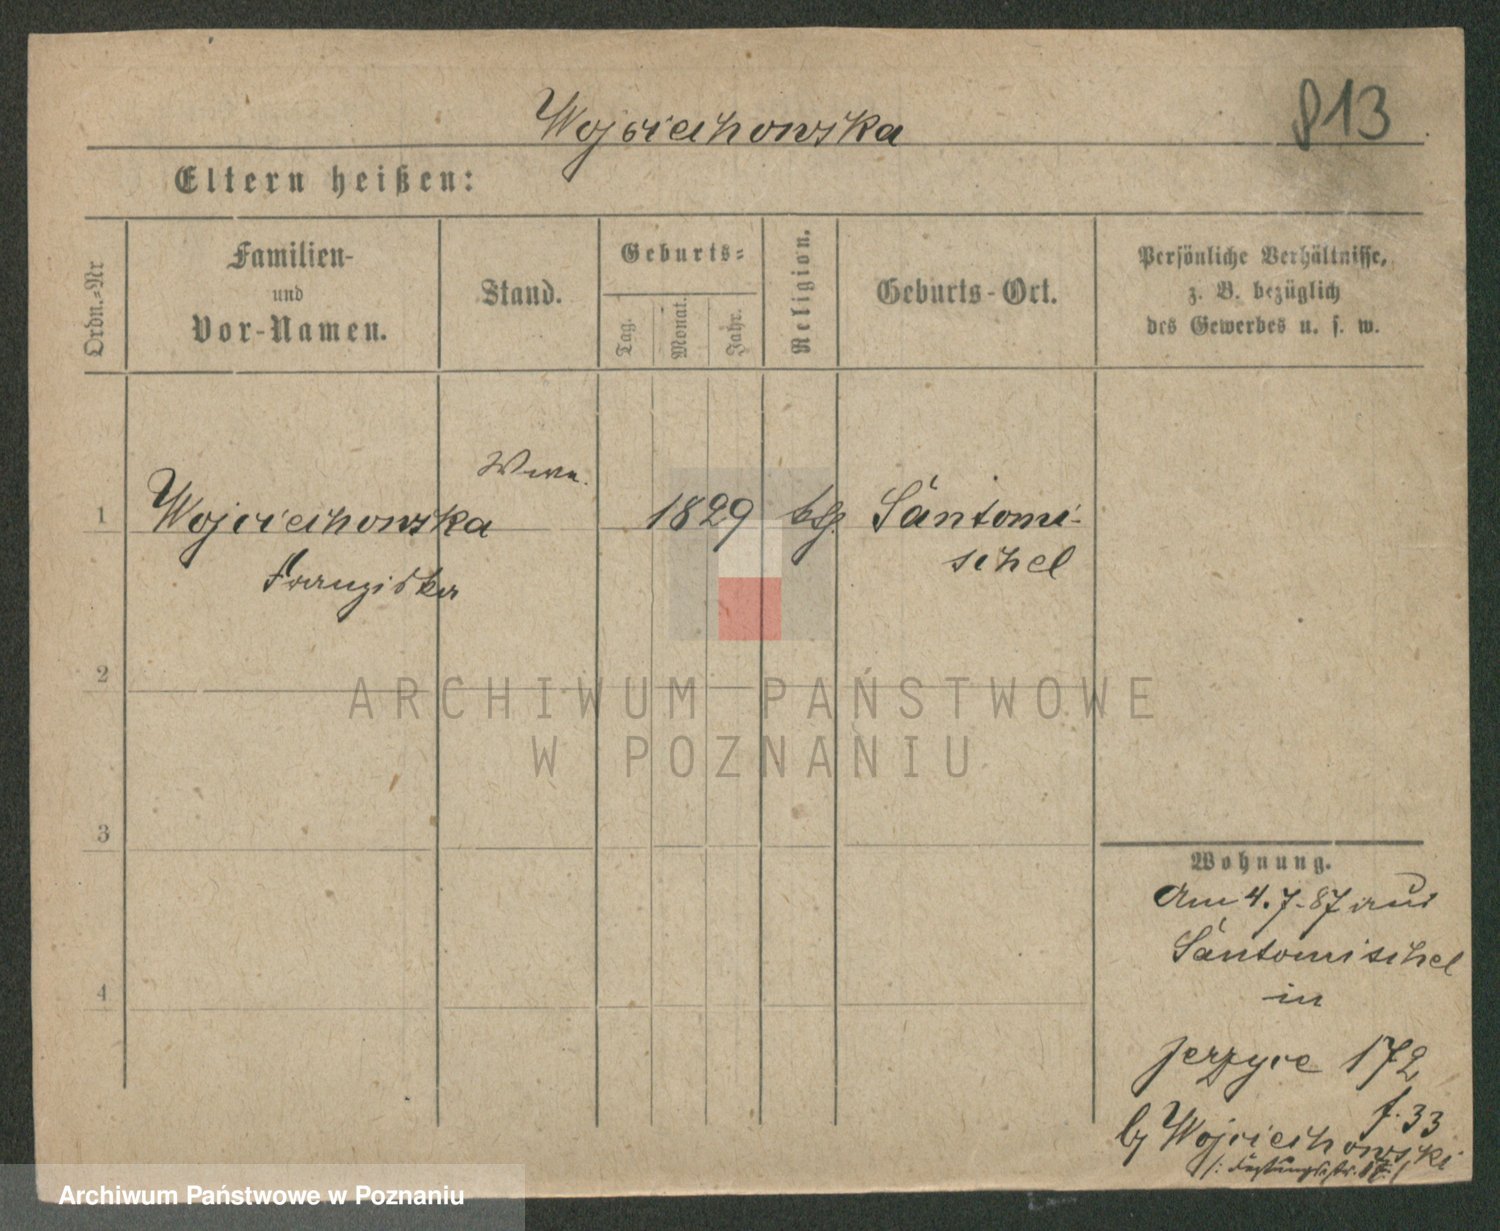 Wojciechowska
813
Eltern heißen:
Ordn.=Nr
Familien-
und
Vor-Namen.
Stand.
Geburts=
Tag.
Monat.
Jahr.
Religion.
Geburts-Ort.
Persönliche Verhältnisse,
z. B. bezüglich
des Gewerbes u. s. w.
1
Wojciechowska
Franziska
Wwe.
1829
kth.
Santomi-
schel
2
3
4
Wohnung.
Am 4.7.87 aus
Santomischel
in
Jerzyce 172
f. 33
by Wojciechowski
ARCHIWUM PAŃSTWOWE
W POZNANIU
Archiwum Państwowe w Poznaniu